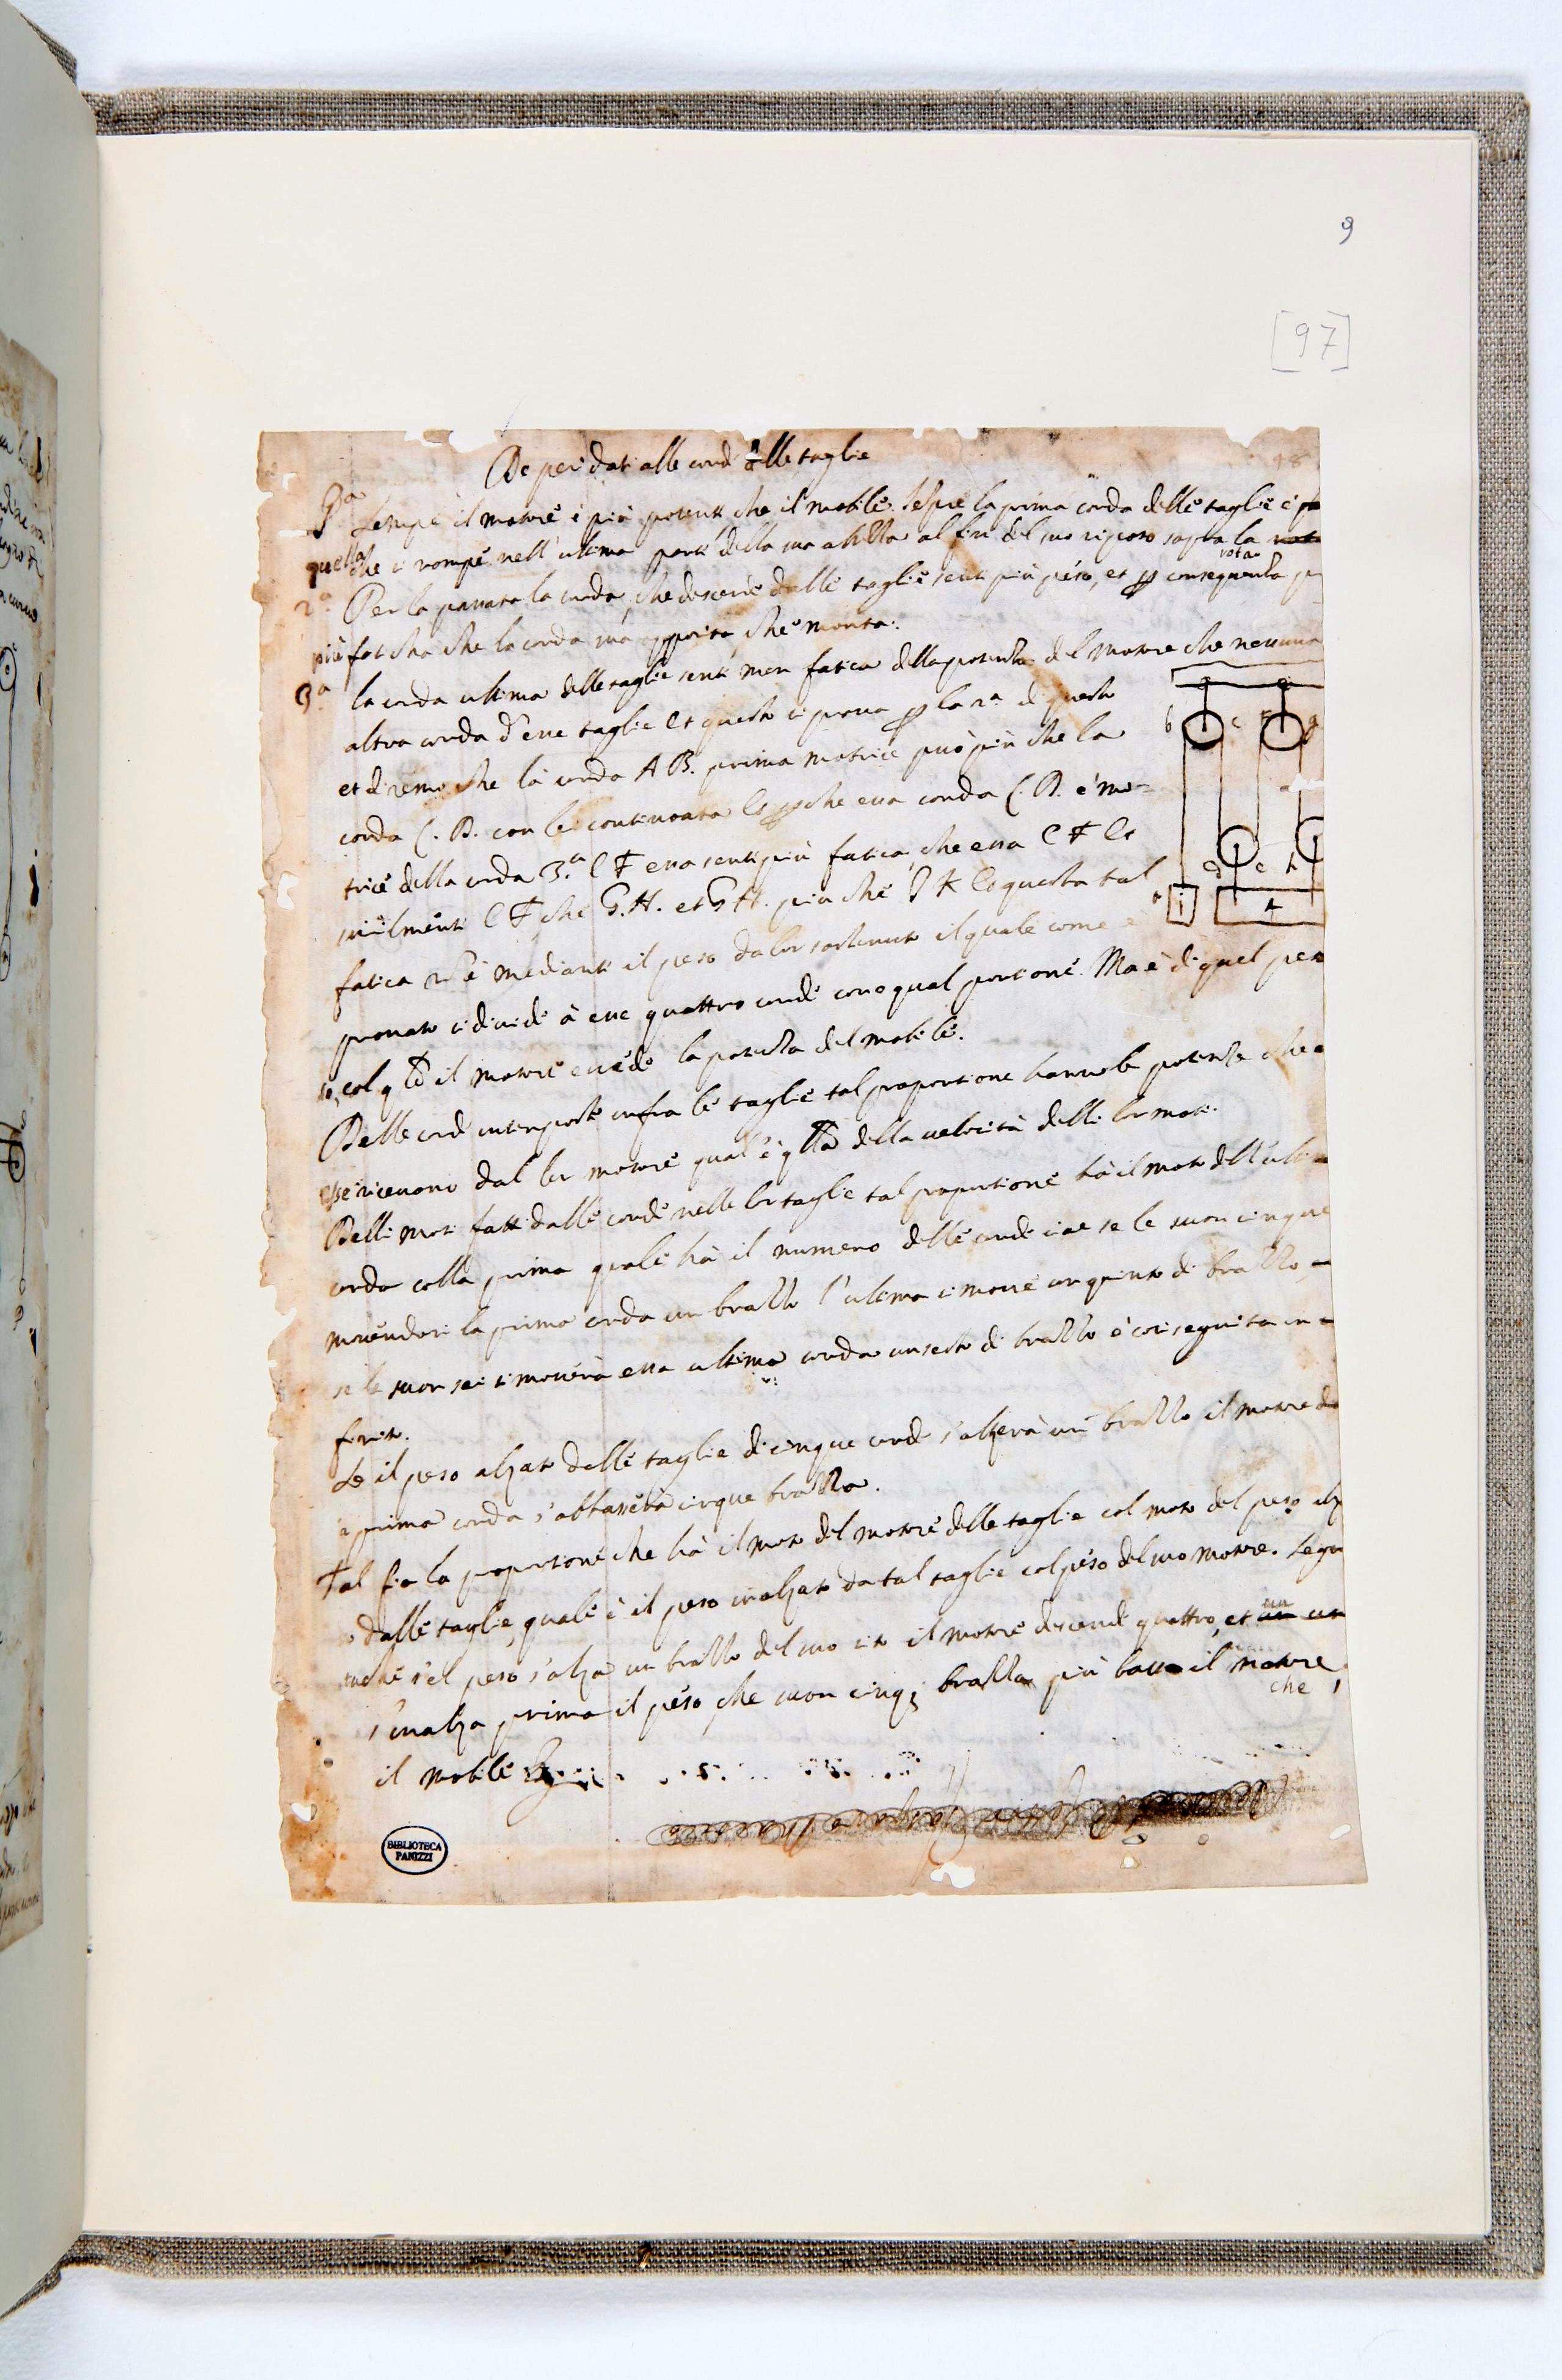 9
[97]
98
De pesi dati alle corde alle taglie
Pa Sempre il motore è più potente che il mobile. Sempre la prima corda delle taglie è
quella che si rompe nell'ultima parte della sua altezza al fin del suo riposo sopra la
rota
2a Per la passata la corda, che descende dalle taglie sente più peso, et p conseguenza
più faticha che la corda sua opposita, che monta.
3a la corda ultima delle taglie sente men fatica della potenza del motore che nessuna
altra corda d'esse taglie Et questo si prova p la 2a di questo
et diremo che la corda A B. prima motrice può più che la
corda C. D. con lei continoata Et p che essa corda C. D. è mo-
trice della corda 3.a E F essa sente più fatica, che essa E F Et
similmente E F che G. H. et G H. più che I K Et questa tal
fatica è mediante il peso da lor sostenuto il quale come è
provato si divide à esse quattro corde con equal portione. Ma è di quel pe
so, col il motore eccede la potenza del mobile.
Delle corde interposte infra le taglie tal proportione hanno le potenze che
esse ricevono dal lor motore qual'è qlla della velocità delli lor moti.
Delli moti fatti dalle corde nelle lor taglie tal proportione hà il moto dell'ultima
corda colla prima quale hà il numero delle corde cioe se le suon cinque
movendosi la prima corda un brazzo l'ultima si move un quinto di brazzo,
se le suon sei si moverà essa ultima corda un sesto di brazzo è così seguita in
finito.
Se il peso alzato dalle taglie di cinque corde s'alzerà un brazzo il motore
a prima corda s'abbasserà cinque brazza.
Tal fia la proportione che hà il moto del motore delle taglie col moto del peso alz
o dalle taglie, quale è il peso inalzato da tal taglie col peso del suo motore.
s'el peso s'alza un brazzo del suo sito il motore descende quattro, et
s'inalza prima il peso che suon cinq; brazza più basso il motore
che
il mobile
b c g
d e h
i
BIBLIOTECA
PANIZZI